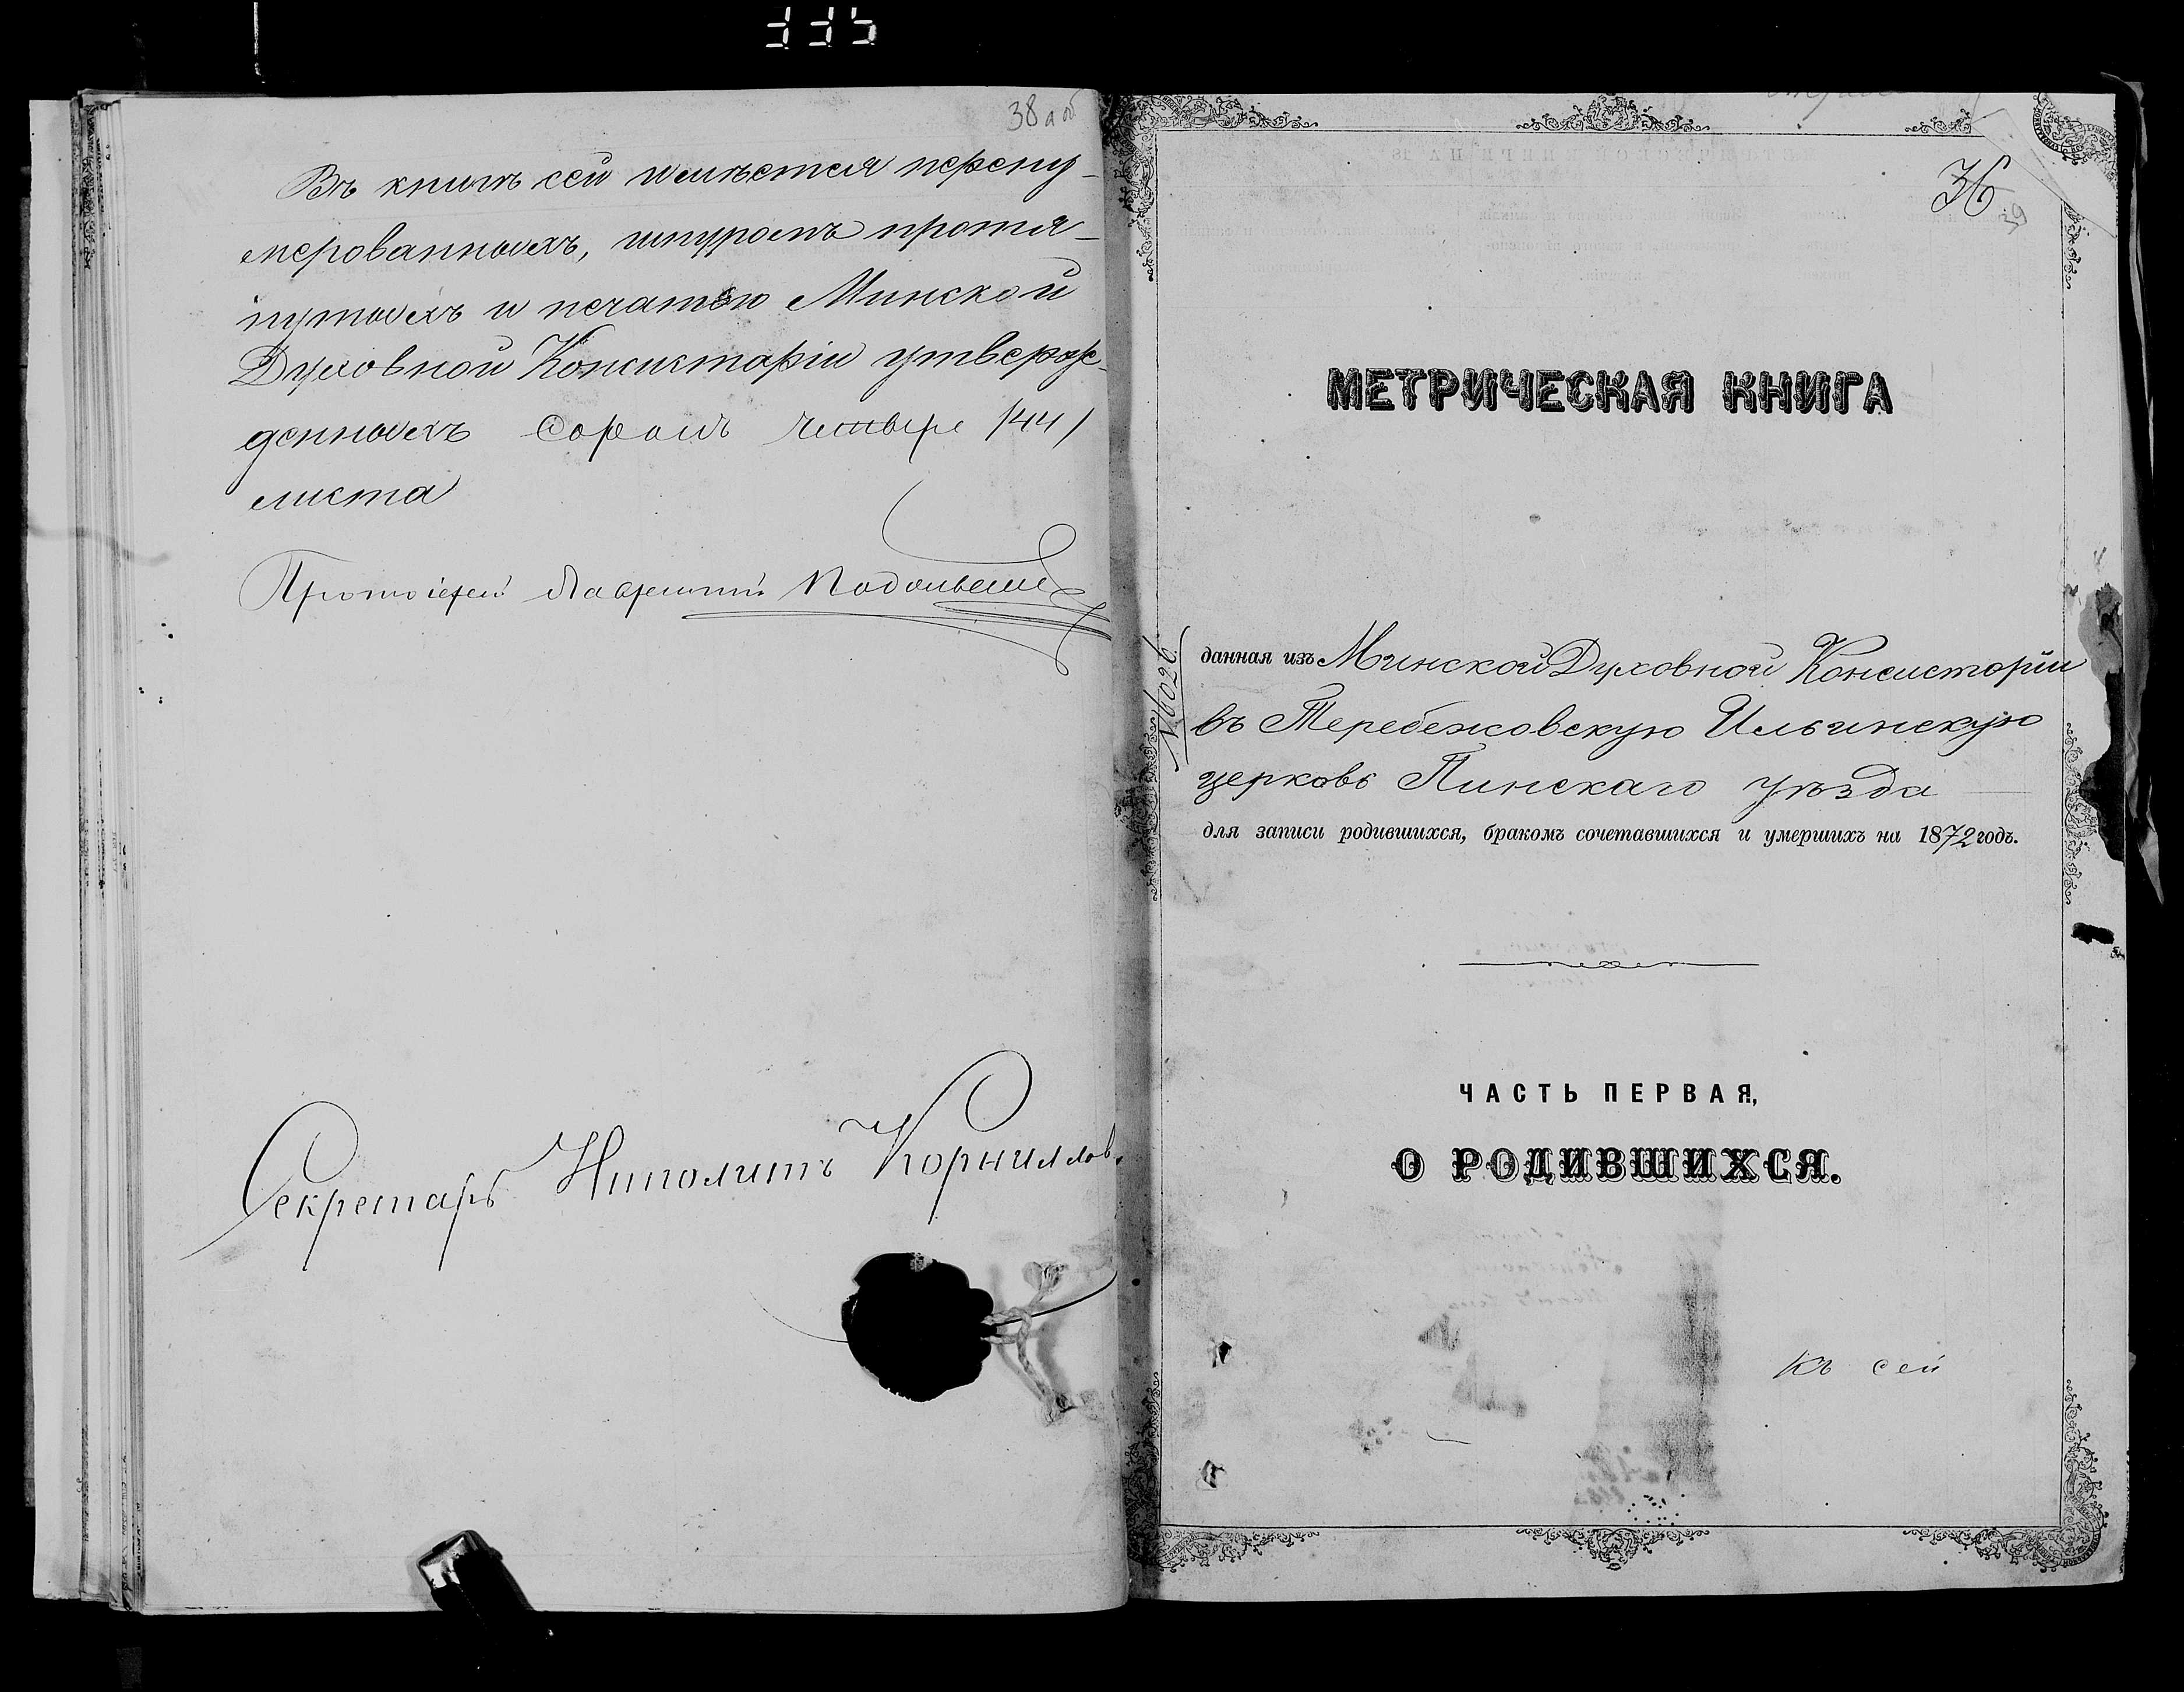 335
38а об
Въ книгѣ сей имѣется перену-
мерованныхъ, шнуромъ протя-
нутыхъ и печатью Минской
Духовной Консисторіи утверж-
денныхъ сорокъ четыре /44/
листа
Протоіерей Лаврентій
Секретарь Ипполитъ Корниловъ
36
39
МЕТРИЧЕСКАЯ КНИГА
№6026
данная изъ Минской Духовной Консисторіи
въ Теребежовскую Ильинскую
церковь Пинскаго уѣзда
для записи родившихся, бракомъ сочетавшихся и умершихъ на 1872 годъ.
ЧАСТЬ ПЕРВАЯ,
О РОДИВШИХСЯ.
къ сей